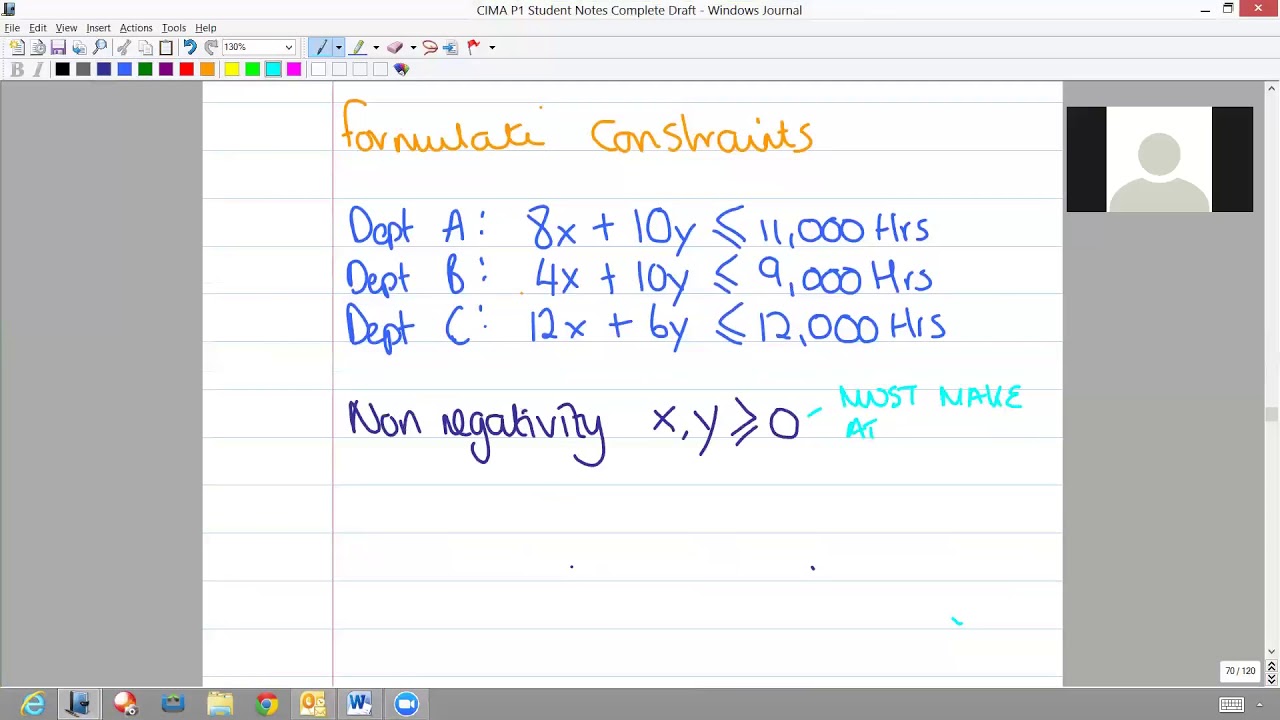 CIMA P1 Student Notes Complete Draft - Windows Journal
File Edit View Insert Actions Tools Help
130%
B I
Formulate Constraints
Dept A: 8x + 10y ≤ 11,000 Hrs
Dept B: 4x + 10y ≤ 9,000 Hrs
Dept C: 12x + 6y ≤ 12,000 Hrs
Non negativity x, y ≥ 0 - MUST MAKE
AT
70 / 120